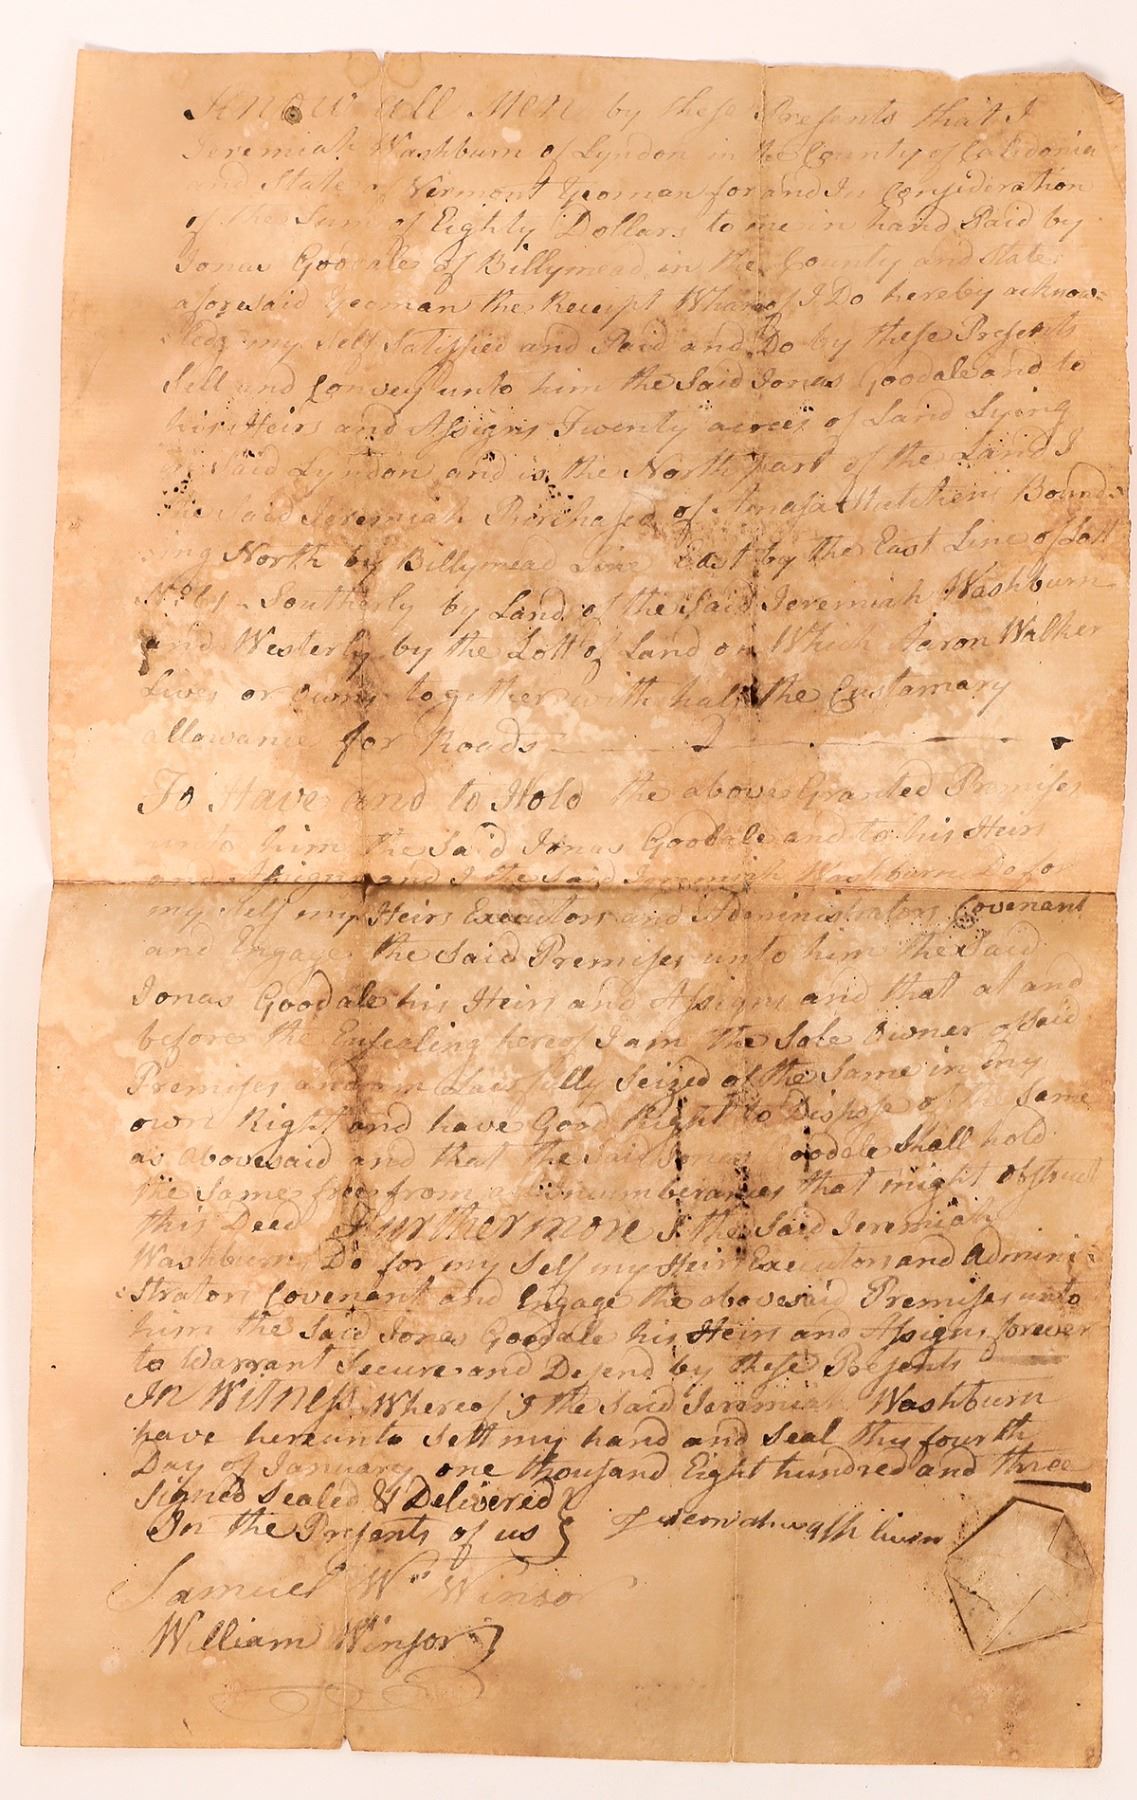 Know all Men by these Presents that I
Jeremiah Washburn of Lyndon in the County of Caledonia
and State of Vermont Yeoman for and In Consideration
of the Sum of Eighty Dollars to me in hand Paid by
Jonas Goodale of Billymead in the County and State
aforesaid Yeoman the Receipt Whareof I Do hereby acknow=
=ledg my self Satisfied and Paid and Do by these Presents
Sell and Convey unto him the Said Jonas Goodale and to
his Heirs and Assigns Twenty acres of Land Lying
in Said Lyndon and is the North part of the Land I
the Said Jeremiah Purchased of Amasa Hutchens Bound=
=ing North by Billymead Line East by the East Line of Lott
No 61 Southerly by Land of the Said Jeremiah Washburn
and Westerly by the Lott of Land on Which Aaron Walker
Lives or owns together with half the Customary
allowance for Roads
To Have and to Hold the above Granted Premises
unto him the Said Jonas Goodale and to his Heirs
and Assigns and I the Said Jeremiah Washburn Do for
my self my Heirs Executors and Administrators Covenant
and Engage the Said Premises unto him the Said
Jonas Goodale his Heirs and Assigns and that at and
before the Ensealing hereof I am the Sole Owner of Said
Premises and am Lawfully Seized of the Same in my
own Right and have Good Right to Dispose of the Same
as abovesaid and that the Said Jonas Goodale Shall hold
the Same free from all Incumberances that might obstruct
this Deed Furthermore I the Said Jeremiah
Washburn Do for my Self my Heirs Executors and Admini=
=strators Covenant and Engage the abovesaid Premises unto
him the Said Jonas Goodale his Heirs and Assigns forever
to Warrant Secure and Defend by these Presents
In Witness Whereof I the Said Jeremiah Washburn
have hereunto Sett my hand and Seal this fourth
Day of January one thousand Eight hundred and three
Signed Sealed & Delivered
In the Presents of us } Jeremiah washburn
Samuel Wm Winsor
William Winsor }